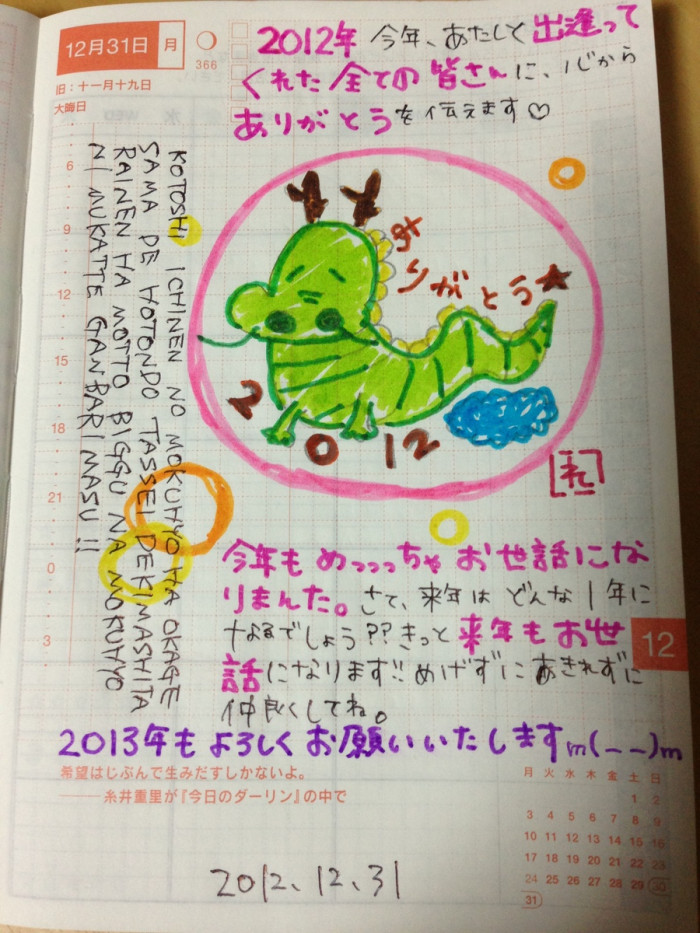 12月31日 月
366
旧:十一月十九日
大晦日
2012年 今年、あたしと出逢って
くれた全ての皆さんに、心から
ありがとうを伝えます♡
6
9
12
15
18
21
0
3
KOTOSHI ICHINEN NO MOKUHYO HA OKAGE
SAMA DE HOTONDO TASSEI DEKIMASHITA
RAINEN HA MOTTO BIGGU NA MOKUHYO
NI MUKATTE GANBARIMASU!!
ありがとう★
2012
れ
今年もめっっっちゃお世話にな
りまんた。さて、来年はどんな1年に
なるでしょう??きっと来年もお世
話になります!!めげずにあきれずに
仲良くしてね。
2013年もよろしくお願いいたしますm(__)m
12
希望はじぶんで生みだすしかないよ。
——糸井重里が『今日のダーリン』の中で
月 火 水 木 金 土 日
1 2
3 4 5 6 7 8 9
10 11 12 13 14 15 16
17 18 19 20 21 22 23
24 25 26 27 28 29 30
31
2012.12.31